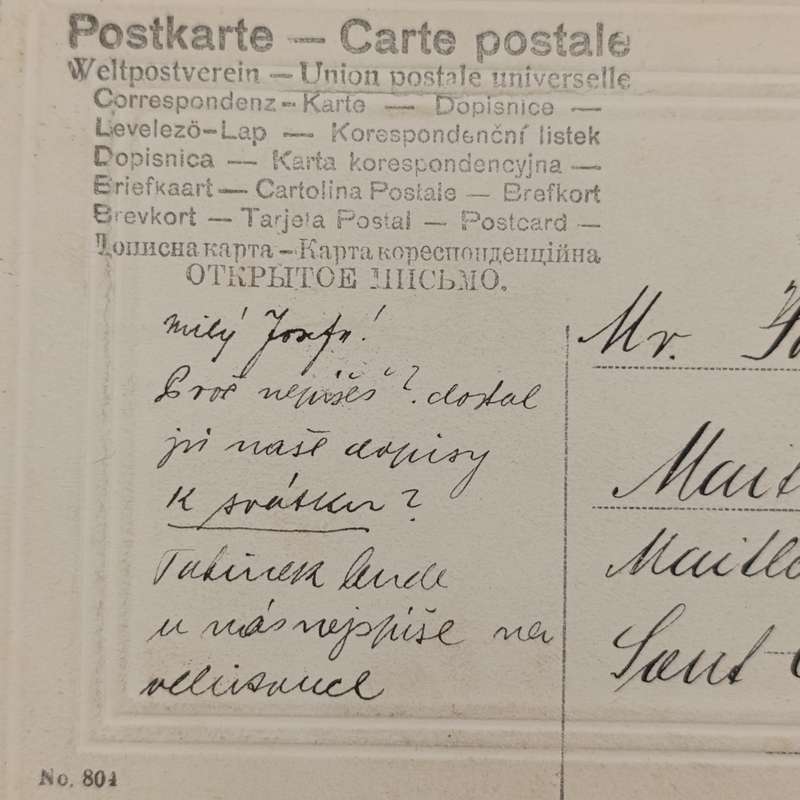 Postkarte — Carte postale
Weltpostverein — Union postale universelle
Correspondenz-Karte — Dopisnice —
Levelező-Lap — Korespondenční listek
Dopisnica — Karta korespondencyjna —
Briefkaart — Cartolina Postale — Brefkort
Brevkort — Tarjeta Postal — Postcard —
Дописна карта — Карта кореспонденційна
ОТКРЫТОЕ ПИСЬМО.
milý Josefe!
Proč nepíšeš? dostal
jsi naše dopisy
k svátku?
Tatínek bude
u nás nejspíše na
velikonoce
Mr.
Maitl
Sout
No. 804